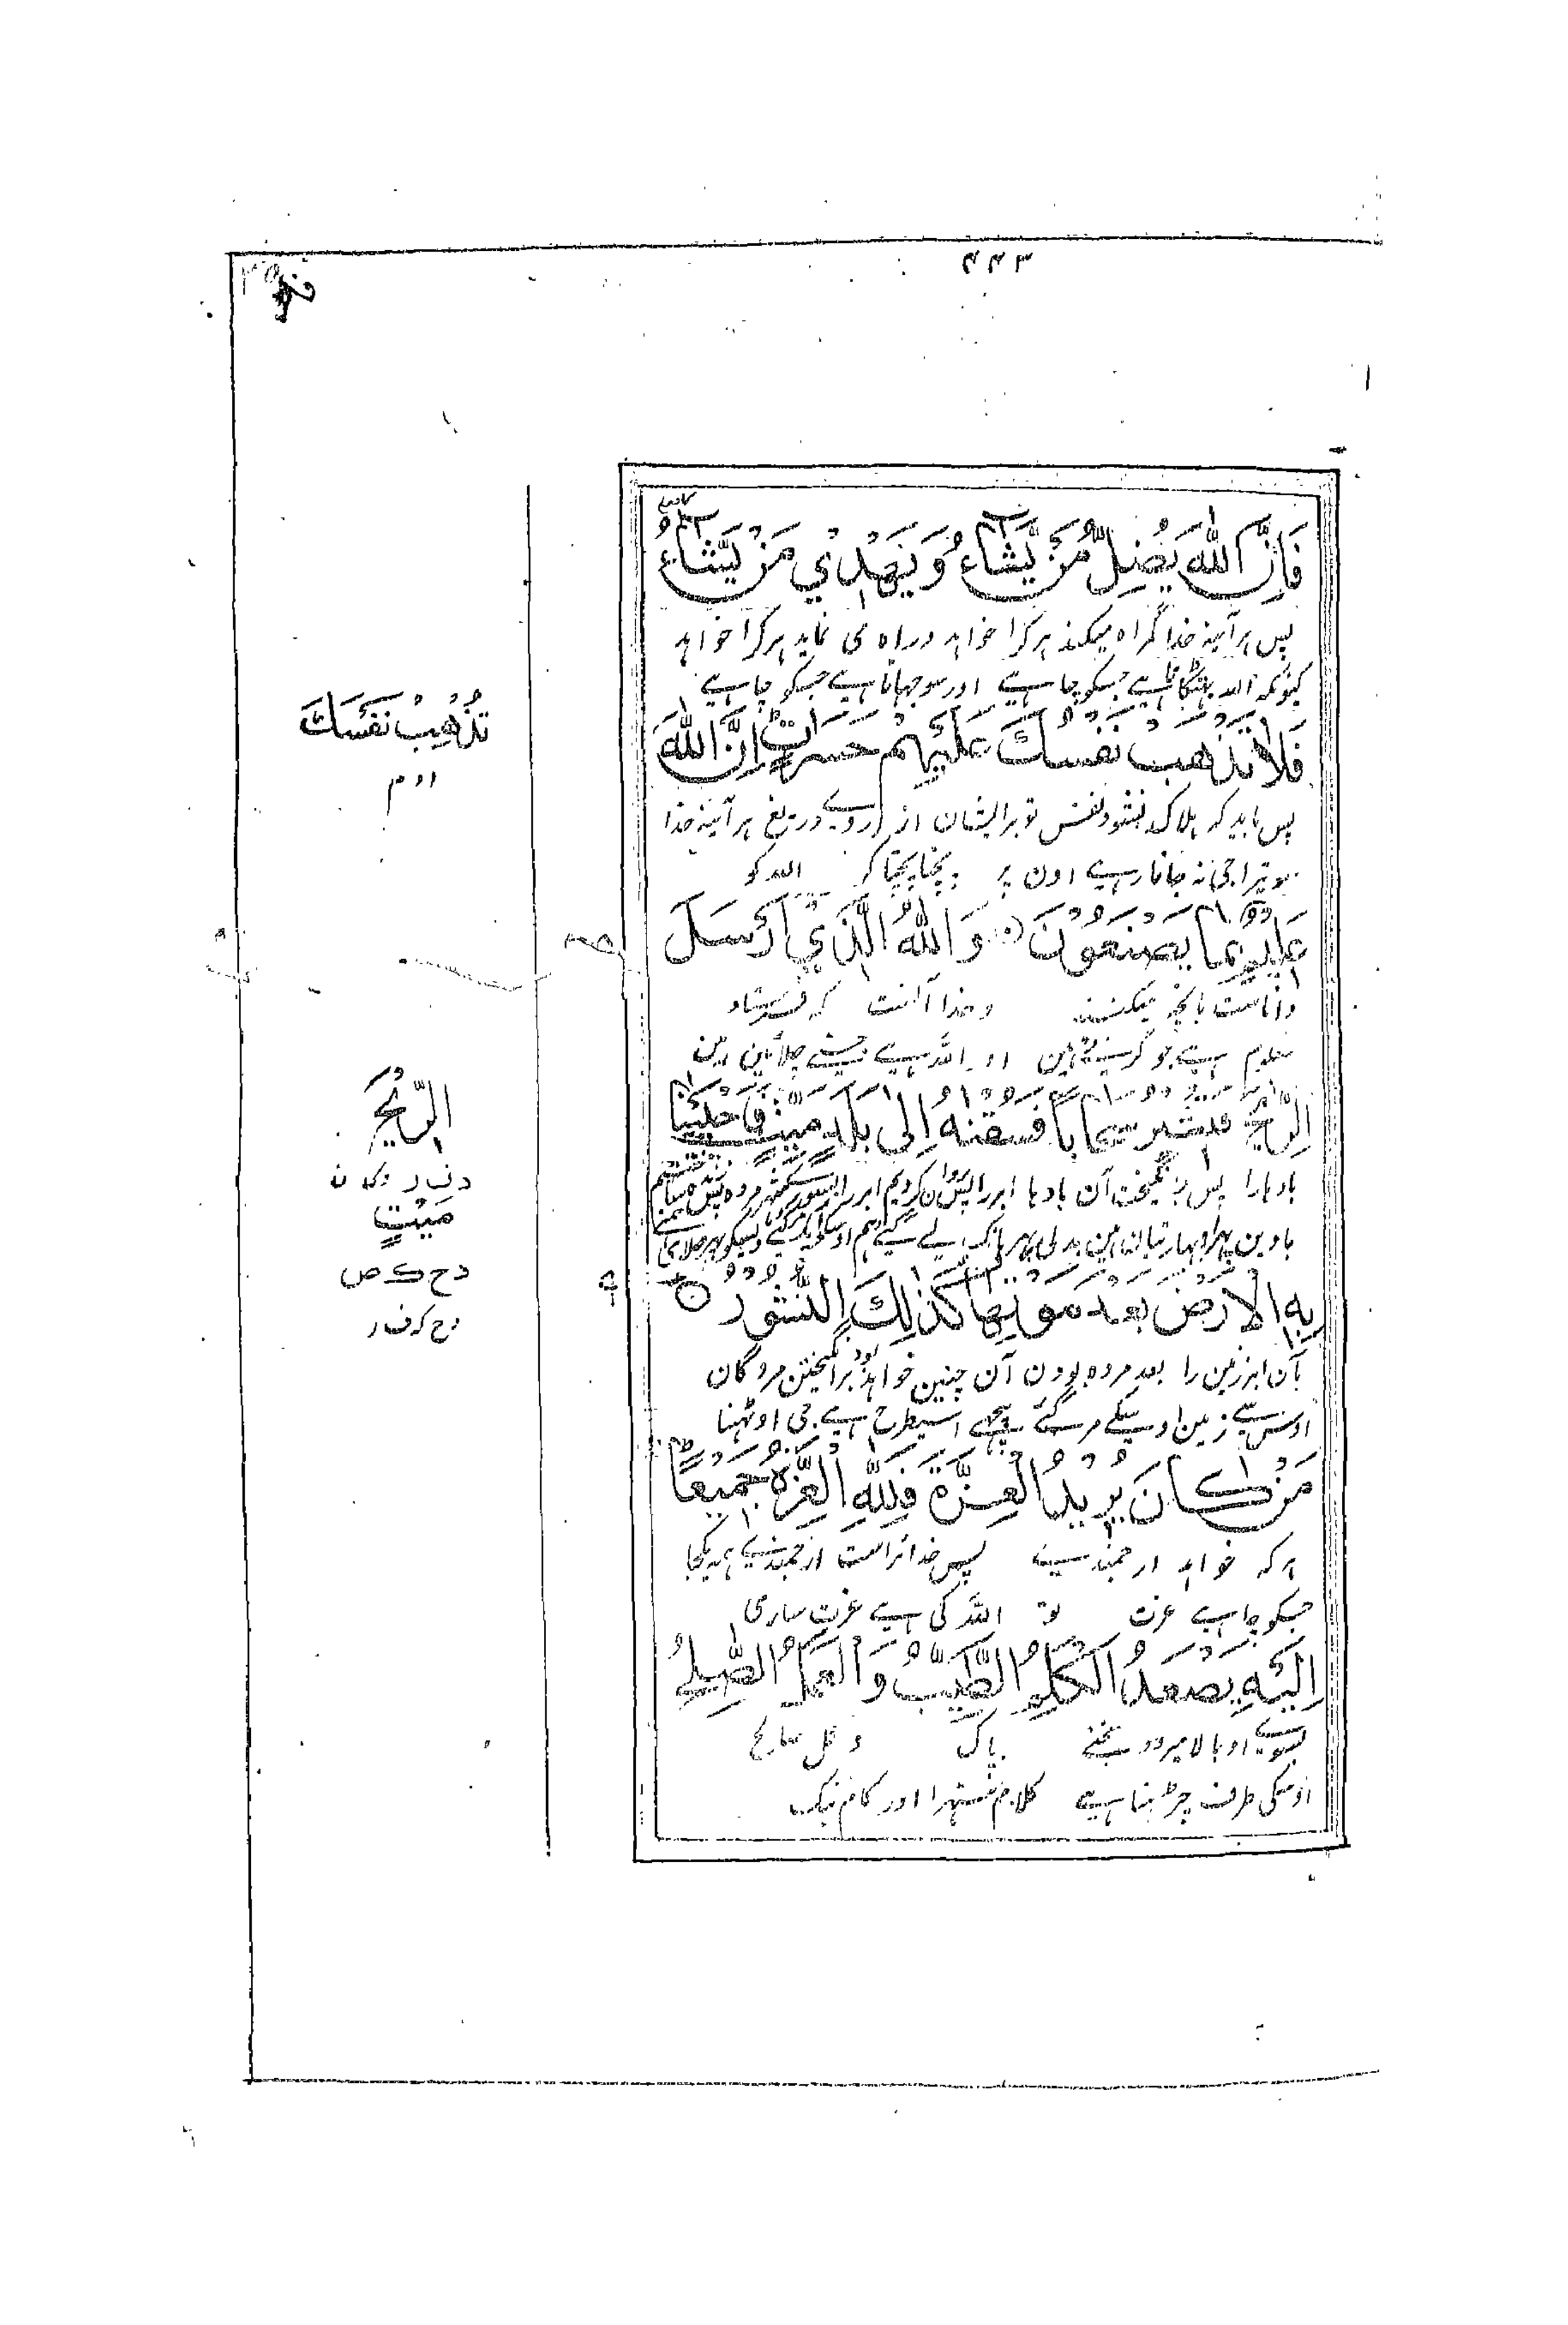 ۴۴۳
فَاِنَّ اللّٰهَ يُضِلُّ مَنْ يَّشَآءُ وَيَهْدِيْ مَنْ يَّشَآءُ
پس هر آئینه خدا گمراه میکند هر کرا خواهد و راه می نماید هر کرا خواهد
کیونکہ اللہ بھٹکاتا ہے جسکو چاہے اور سوجھاتا ہے جسکو چاہے
فَلَا تَذْهَبْ نَفْسُكَ عَلَيْهِمْ حَسَرٰتٍ ؕ اِنَّ اللّٰهَ
پس باید که هلاک نشود نفس تو بر ایشان از روے دریغ هر آئینه خدا
سو تیرا جی نہ جاتا رہے اون پر پچتا پچتا کر اللہ کو
عَلِيْمٌۢ بِمَا يَصْنَعُوْنَ ۝ وَاللّٰهُ الَّذِيْٓ اَرْسَلَ
دانا ست بآنچه میکنند و خدا آنست که فرستاد
معلوم ہے جو کرتے ہین اور اللہ ہے جسنے چلائین ہین
الرِّيٰحَ فَتُثِيْرُ سَحَابًا فَسُقْنٰهُ اِلٰى بَلَدٍ مَّيِّتٍ فَاَحْيَيْنَا
بادہا را پس بر انگیخت آن بادہا ابر را پس روان کردیم ابر را بسوے شہر مردہ پس زندہ ساختیم
باوین پھر اوبھارتیان ہین بدلی پھر ہانک لے گئے ہم اوسکو ایک مر گئے دیس کو پھر جلائی ہمنے
بِهِ الْاَرْضَ بَعْدَ مَوْتِهَا ؕ كَذٰلِكَ النُّشُوْرُ ۝
بآن ابر زمین را بعد مرده بودن آن چنین خواهد بود بر انگیختن مردگان
اوس سے زمین اوسکے مر گئے پیچھے اسیطرح ہے جی اوٹھنا
مَنْ كَانَ يُرِيْدُ الْعِزَّةَ فَلِلّٰهِ الْعِزَّةُ جَمِيْعًا ؕ
هر که خواهد ارجمندی پس خدائراست ارجمندی همه یکجا
جسکو چاہے عزت تو اللہ کی ہے عزت ساری
اِلَيْهِ يَصْعَدُ الْكَلِمُ الطَّيِّبُ وَالْعَمَلُ الصّٰلِحُ
بسوے او بالا میرود سخنے پاک و عمل صالح
اوسکی طرف چڑھتا ہے کلام ستھرا اور کام نیک
تُذْهِبْ نَفْسَكَ
الرِّيْحَ
مَيْتٍ